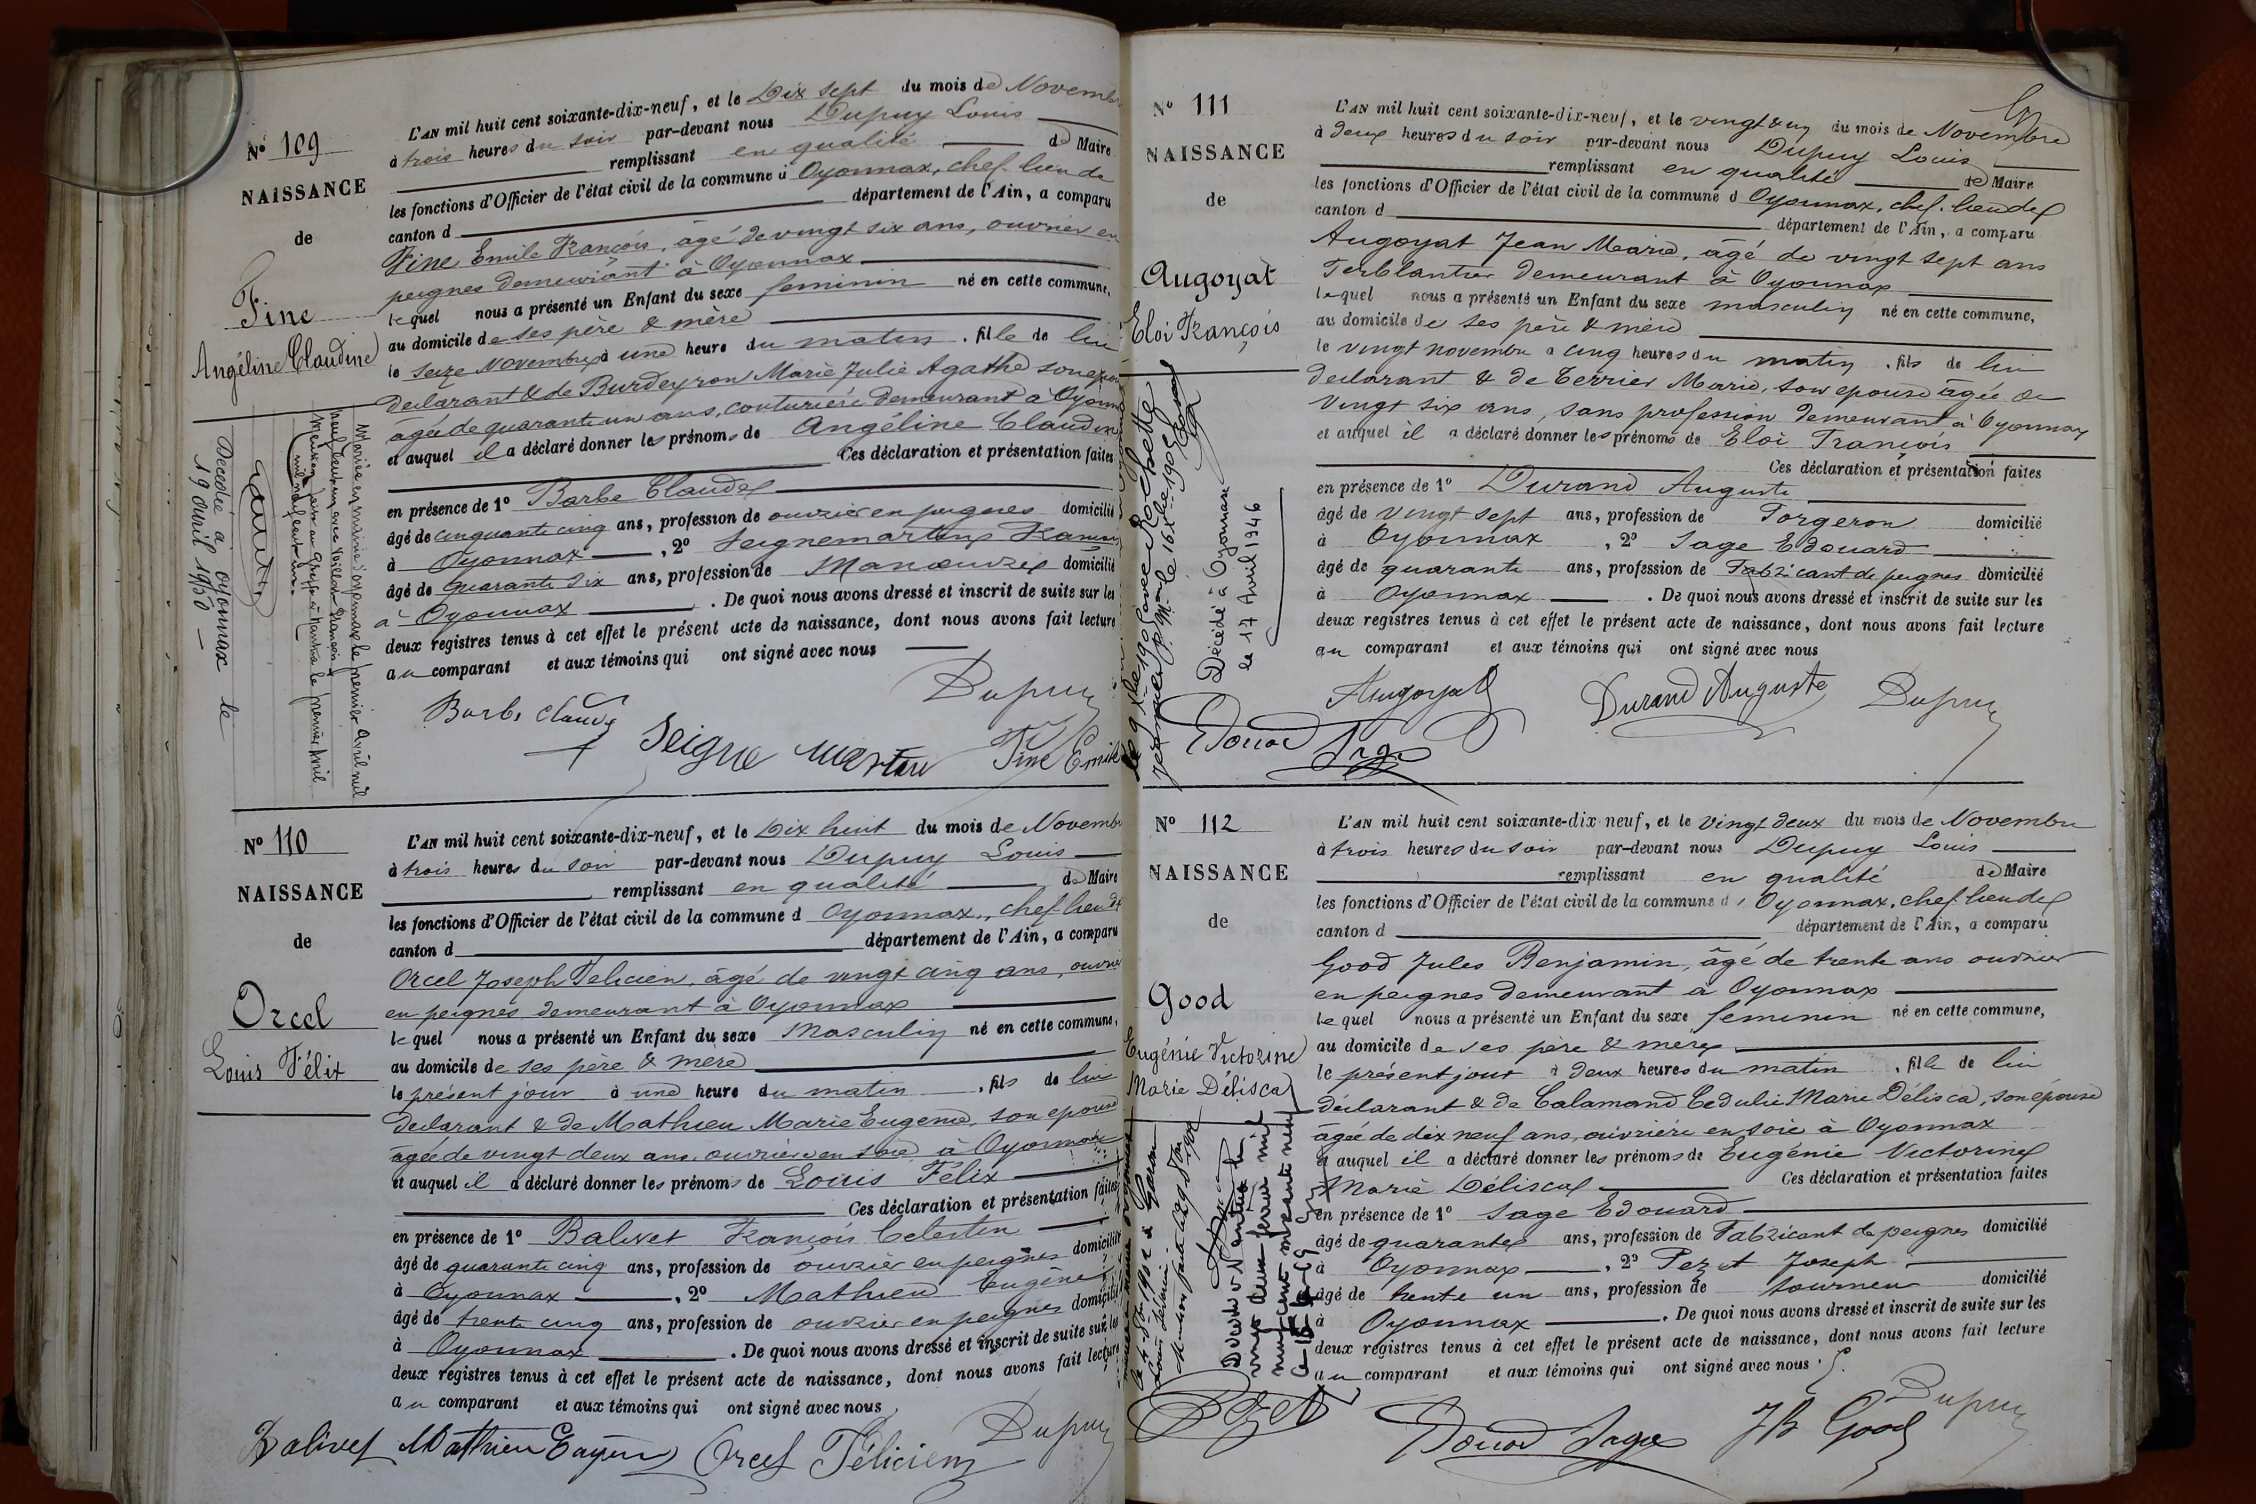 Nº 109
NAISSANCE
de
Fine
Angéline Claudine
L'AN mil huit cent soixante-dix-neuf, et le Dix sept du mois de Novembre
à trois heures du soir par-devant nous Dupuy Louis
remplissant en qualité de Maire
les fonctions d'Officier de l'état civil de la commune d Oyonnax, chef lieu de
canton d département de l'Ain, a comparu
Fine Emile François, âgé de vingt six ans, ouvrier en
peignes demeurant à Oyonnax
lequel nous a présenté un Enfant du sexe feminin né en cette commune,
au domicile de ses père & mère
le seize Novembre à une heure du matin, fille de lui
declarant & de Burdeyron Marie Julie Agathe son epouse
âgée de quarante un ans, couturière demeurant à Oyonnax
et auquel il a déclaré donner les prénoms de Angéline Claudine
Ces déclaration et présentation faites
en présence de 1º Barbe Claude
âgé de cinquante cinq ans, profession de ouvrier en peignes domicilié
à Oyonnax, 2º Seignemartin
âgé de quarante six ans, profession de Manoeuvre domicilié
à Oyonnax. De quoi nous avons dressé et inscrit de suite sur les
deux registres tenus à cet effet le présent acte de naissance, dont nous avons fait lecture
au comparant et aux témoins qui ont signé avec nous
Barbe Claude Seigne martin Dupuy Fine Emile
Mariée en mairie d'oyonnax le premier avril mil
neuf cent un avec Voillat François
Mention faite au Greffe à Nantua le premier Avril
mil neuf cent un
Décédée à oyonnax le
19 avril 1950
Nº 110
NAISSANCE
de
Orcel
Louis Félix
L'AN mil huit cent soixante-dix-neuf, et le Dix huit du mois de Novembre
à trois heures du soir par-devant nous Dupuy Louis
remplissant en qualité de Maire
les fonctions d'Officier de l'état civil de la commune d Oyonnax, chef lieu de
canton d département de l'Ain, a comparu
Orcel Joseph Félicien, âgé de vingt cinq ans, ouvrier
en peignes demeurant à Oyonnax
lequel nous a présenté un Enfant du sexe Masculin né en cette commune,
au domicile de ses père & mère
le présent jour à une heure du matin, fils de lui
declarant & de Mathieu Marie Eugenie, son epouse
âgée de vingt deux ans, ouvrière en soie à Oyonnax
et auquel il a déclaré donner les prénoms de Louis Félix
Ces déclaration et présentation faites
en présence de 1º Balivet François Celestin
âgé de quarante cinq ans, profession de ouvrier en peignes domicilié
à Oyonnax, 2º Mathieu Eugène
âgé de trente cinq ans, profession de ouvrier en peignes domicilié
à Oyonnax. De quoi nous avons dressé et inscrit de suite sur les
deux registres tenus à cet effet le présent acte de naissance, dont nous avons fait lecture
au comparant et aux témoins qui ont signé avec nous
Balivet Mathieu Eugène Orcel Félicien Dupuy
Nº 111
NAISSANCE
de
Augoyat
Eloi François
L'AN mil huit cent soixante-dix-neuf, et le vingt & un du mois de Novembre
à deux heures du soir par-devant nous Dupuy Louis
remplissant en qualité de Maire
les fonctions d'Officier de l'état civil de la commune d Oyonnax, chef lieu de
canton d département de l'Ain, a comparu
Augoyat Jean Marie, âgé de vingt sept ans
Ferblantier demeurant à Oyonnax
lequel nous a présenté un Enfant du sexe masculin né en cette commune,
au domicile de ses père & mère
le vingt novembre à cinq heures du matin, fils de lui
declarant & de Terrier Marie, son epouse âgée de
vingt six ans, sans profession demeurant à Oyonnax
et auquel il a déclaré donner les prénoms de Eloi François
Ces déclaration et présentation faites
en présence de 1º Durand Auguste
âgé de vingt sept ans, profession de Forgeron domicilié
à Oyonnax, 2º Sage Edouard
âgé de quarante ans, profession de Fabricant de peignes domicilié
à Oyonnax. De quoi nous avons dressé et inscrit de suite sur les
deux registres tenus à cet effet le présent acte de naissance, dont nous avons fait lecture
au comparant et aux témoins qui ont signé avec nous
Augoyat Durand Auguste Dupuy
Edouard Sage
Décédé à Oyonnax
le 17 Avril 1946
Nº 112
NAISSANCE
de
Good
Eugénie Victorine
Marie Délisca
L'AN mil huit cent soixante-dix-neuf, et le vingt deux du mois de Novembre
à trois heures du soir par-devant nous Dupuy Louis
remplissant en qualité de Maire
les fonctions d'Officier de l'état civil de la commune d Oyonnax, chef lieu de
canton d département de l'Ain, a comparu
Good Jules Benjamin, âgé de trente ans ouvrier
en peignes demeurant à Oyonnax
lequel nous a présenté un Enfant du sexe feminin né en cette commune,
au domicile de ses père & mère
le présent jour à deux heures du matin, fille de lui
déclarant & de Calamand Cedulie Marie Délisca, son épouse
âgée de dix neuf ans, ouvrière en soie à Oyonnax
et auquel il a déclaré donner les prénoms de Eugénie Victorine
Marie Délisca Ces déclaration et présentation faites
en présence de 1º Sage Edouard
âgé de quarante ans, profession de Fabricant de peignes domicilié
à Oyonnax, 2º Pezet Joseph
âgé de trente un ans, profession de tourneur domicilié
à Oyonnax. De quoi nous avons dressé et inscrit de suite sur les
deux registres tenus à cet effet le présent acte de naissance, dont nous avons fait lecture
au comparant et aux témoins qui ont signé avec nous
Pezet Edouard Sage JB Good Dupuy
Décédée à Nantua le
vingt deux février mil
neuf cent soixante neuf